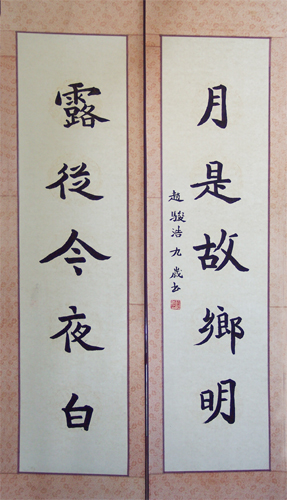 露從今夜白
月是故鄉明
趙駿浩九歲书